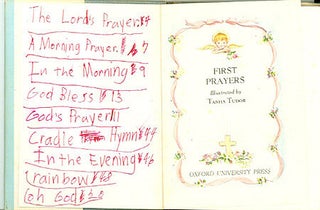 The Lord's Prayer. 4
A Morning Prayer. 7
In the Morning 9
God Bless 13
God's Prayer 11
Cradle Hymn 44
In the Evening 46
rainbow
oh God
FIRST
PRAYERS
Illustrated by
TASHA TUDOR
OXFORD UNIVERSITY PRESS